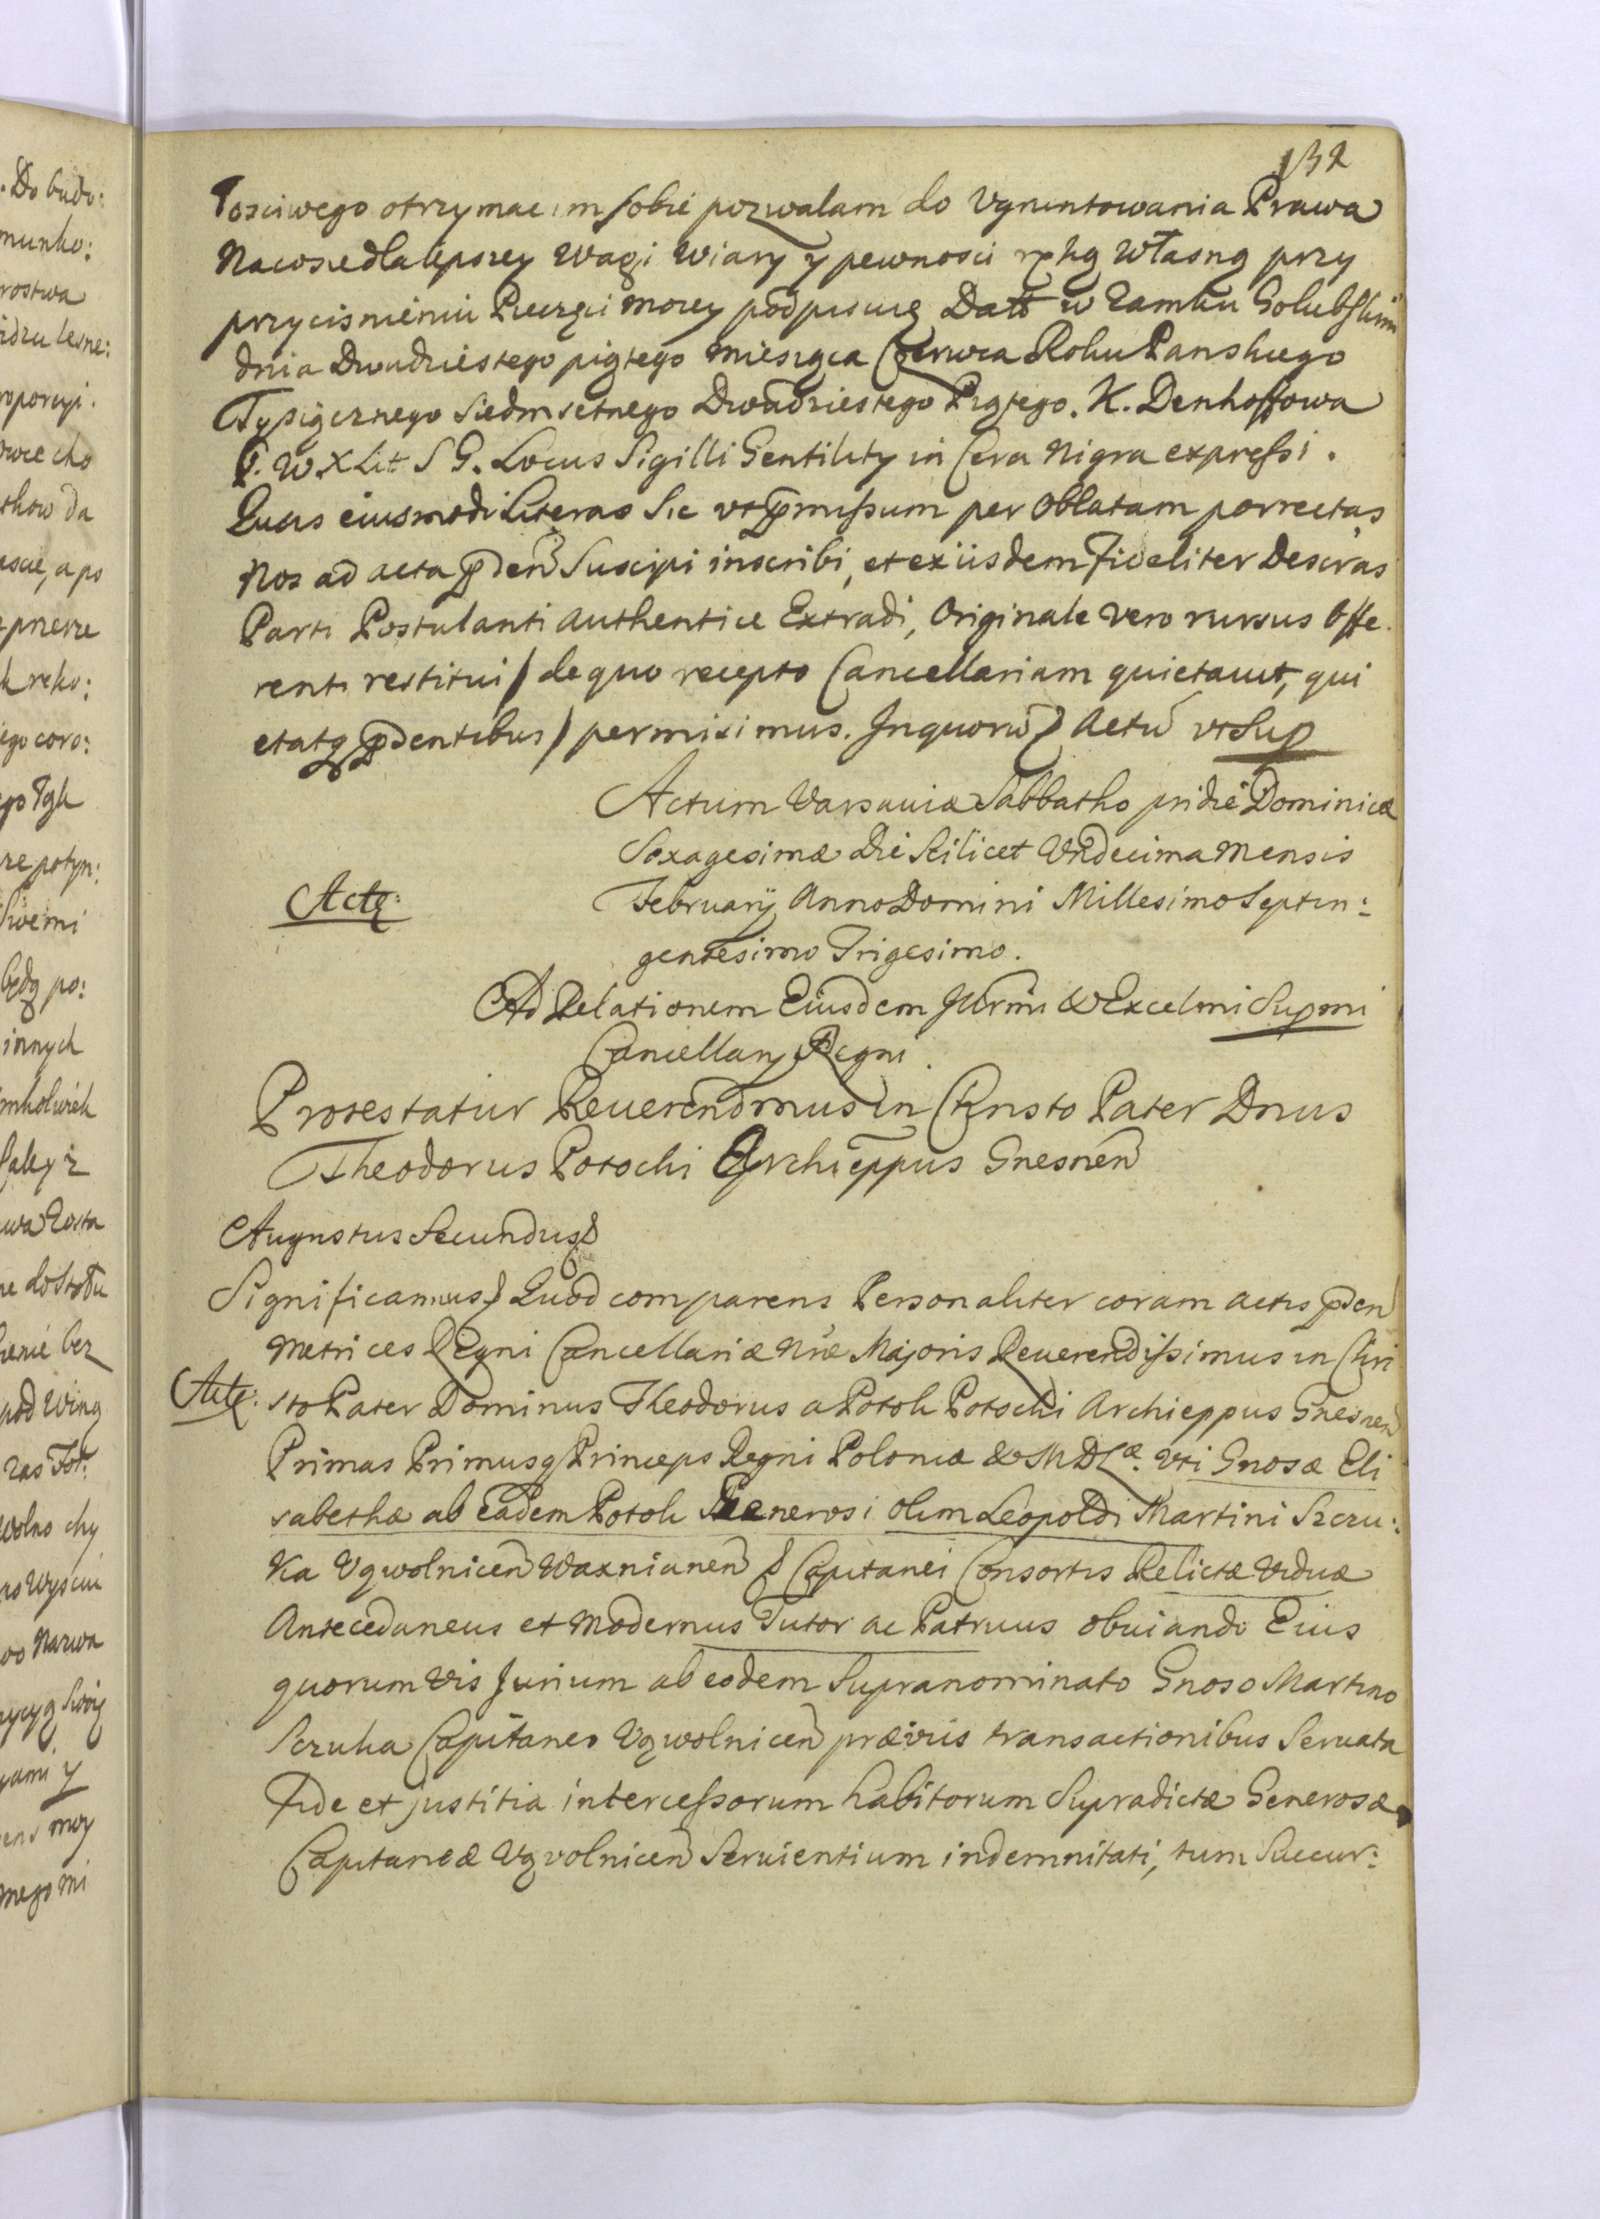 132
łosciwego otrzymac im sobie pozwalam do Vgruntowania Prawa
Nacosiedlalepszey Wagi Wiary y pewnosci ręką własną przy
przycisnieniu Pieczęci moiey podpisuię Datt w Zamku Golubskim
dnia Dwudziestego piątego Miesiąca Czerwca Roku Panskiego
Tysiącznego Siedmsetnego Dwudziestego Piątego. K. Denhoffowa
P. W. X Lit S G. Locus Sigilli Gentility in Cera Nigra expressi.
Quas eiusmodi Literas Sic vt pmissum per Oblatam porrectas
Nos ad acta pden Suscipi inscribi, et ex iisdem fideliter Descrás
Parti Postulanti authentice Extradi, Originale vero rursus Offe.
renti restitui / de quo recepto Cancellariam quietauit, qui
etatq pdentibus / permisimus. Inquorũ Actũ vt Sup
Actum Varsauiæ Sabbatho pridie Dominicæ
Sexagesimæ Die Scilicet Vndecima Mensis
Actę:
February Anno Domini Millesimo Septin:
gentesimo Trigesimo.
Ad Relationem Eiusdem Illrmi & Excelmi Supmi
Cancellary Regni.
Protestatur Reuerendmus in Christo Pater Dnus
Theodorus Potocki Archieppus Gnesnen
Augustus Secundus
Significamus Quod comparens Personaliter coram actis pden
Metrices Regni Cancellariæ Nræ Majoris Reuerendissimus in Chri
Actę:
sto Pater Dominus Theodorus a Potok Potocki Archieppus Gnesnen
Primas Primusq Princeps Regni Poloniæ & M D Læ. Vti Gnosæ Eli
sabethæ ab eadem Potok Generosi olim Leopoldi Martini Szczu:
Ka Vąwolnicen Waxnianen Capitanei Consortis Relictæ Viduæ
Antecedaneus et Modernus Tutor ac Patruus obuiando Eius
quorumvis Jurium ab eodem Supranominato Gnoso Martino
Sczuka Capitaneo Vąwolnicen præviis transactionibus Seruata
fide et justitia intercessorum habitorum Supradictæ Generosæ
Capitaneæ Vąvolnicen Seruientium indemnitati, tum Succur: